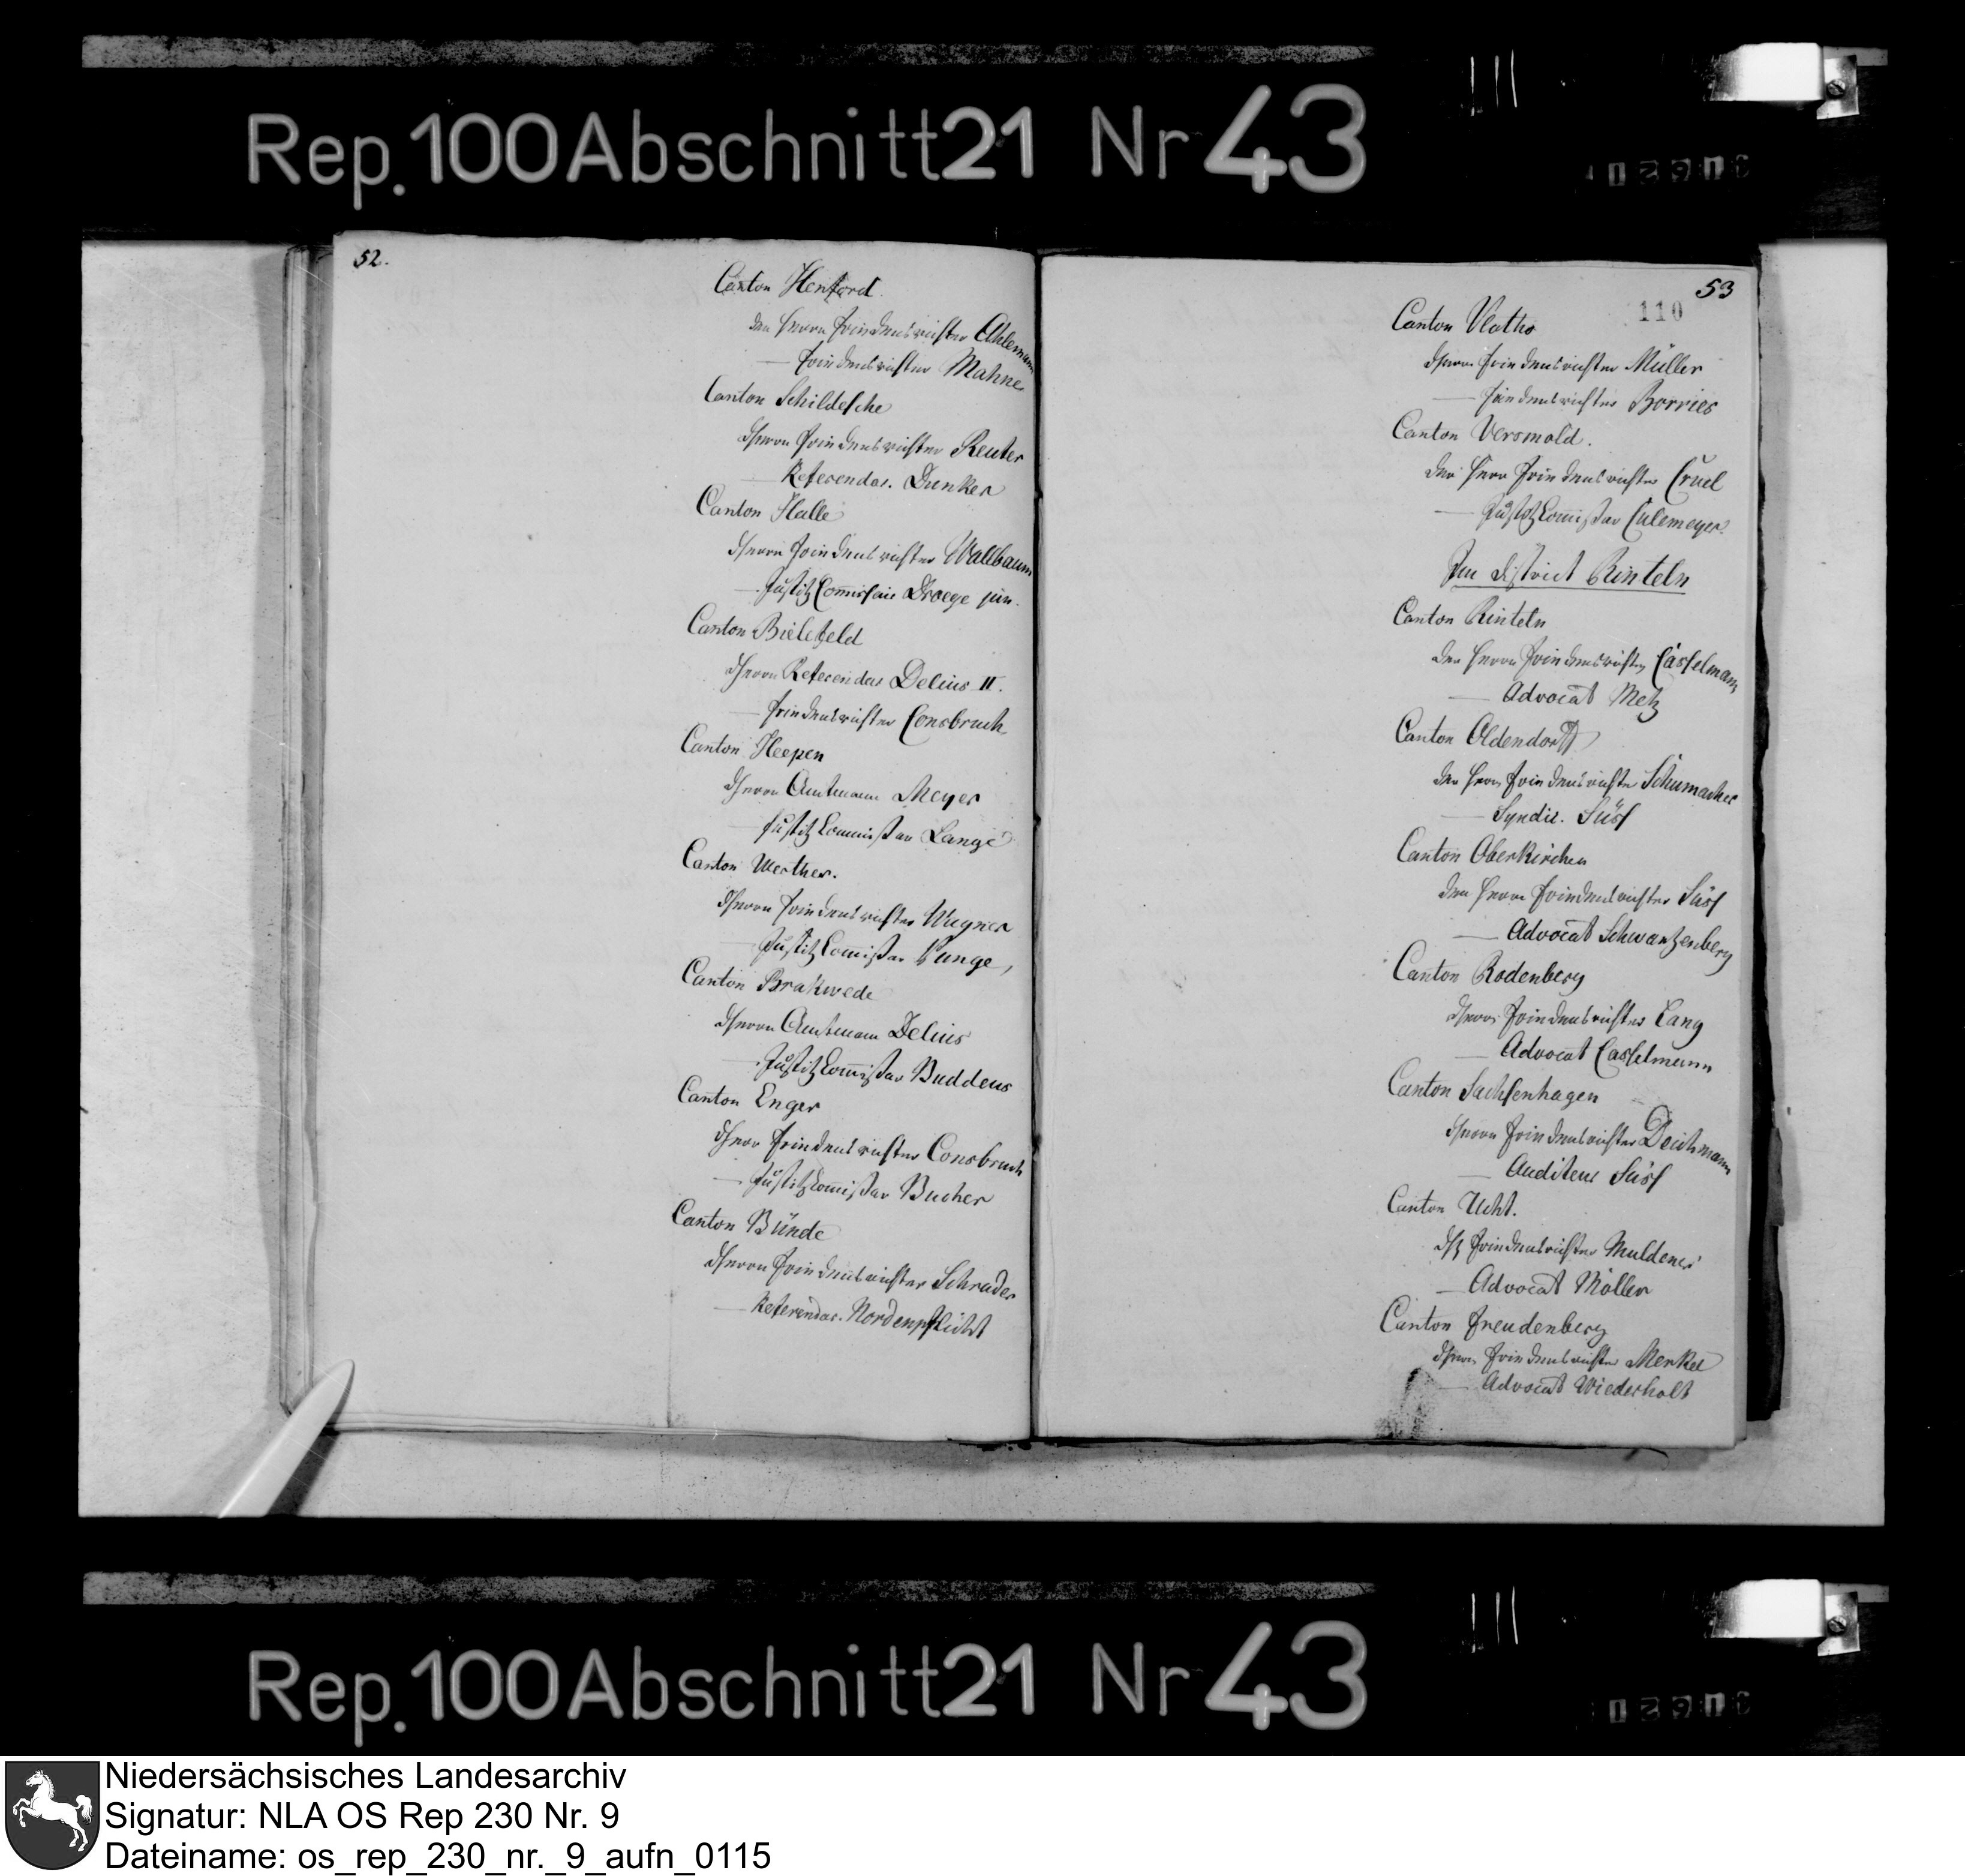 Rep. 100 Abschnitt 21 Nr 43
52.
Canton Herford
den Herrn Friedensrichter Ahlemann
— Friedensrichter Mahne
Canton Schildesche
Herrn Friedensrichter Reuter
— Referendar. Dunker
Canton Halle
Herrn Friedensrichter Wallbaum
— Justitz Commissair Droege jun.
Canton Bielefeld
Herrn Referendar Delius II.
— Friedensrichter Consbruch
Canton Heepen
Herrn Amtmann Meyer
— Justitz Commissar Lange
Canton Werther.
Herrn Friedensrichter Wagner
— Justitz Commissar
Canton Brakwede
Herrn Amtmann Delius
— Justitz Commissar Buddeus
Canton Enger
Herr Friedensrichter Consbruch
— Justitz Commissar Bucher
Canton Bünde
Herrn Friedensrichter Schrader
— Referendar. Nordenpflicht
53
110
Canton Vlotho
Herrn Friedensrichter Müller
— Friedensrichter Borries
Canton Versmold.
den Herrn Friedensrichter Cruel
— Justitz Commissar Culemeyer
Im District Rinteln
Canton Rinteln
den Herrn Friedensrichter Casselmann
— Advocat Metz
Canton Oldendorff
den Herrn Friedensrichter Schumacher
— Syndic. Süss
Canton Obernkirchen
den Herrn Friedensrichter Süss
— Advocat Schwartzenberg
Canton Rodenberg
Herrn Friedensrichter Lang
— Advocat Casselmann
Canton Sachsenhagen
Herrn Friedensrichter Deichmann
— Auditeur Süss
Canton Ucht.
H. Friedensrichter Muldener
— Advocat Möller
Canton Freudenberg
Herrn Friedensrichter Merkel
— Advocat Wiederholt
Rep. 100 Abschnitt 21 Nr 43
Niedersächsisches Landesarchiv
Signatur: NLA OS Rep 230 Nr. 9
Dateiname: os_rep_230_nr._9_aufn_0115